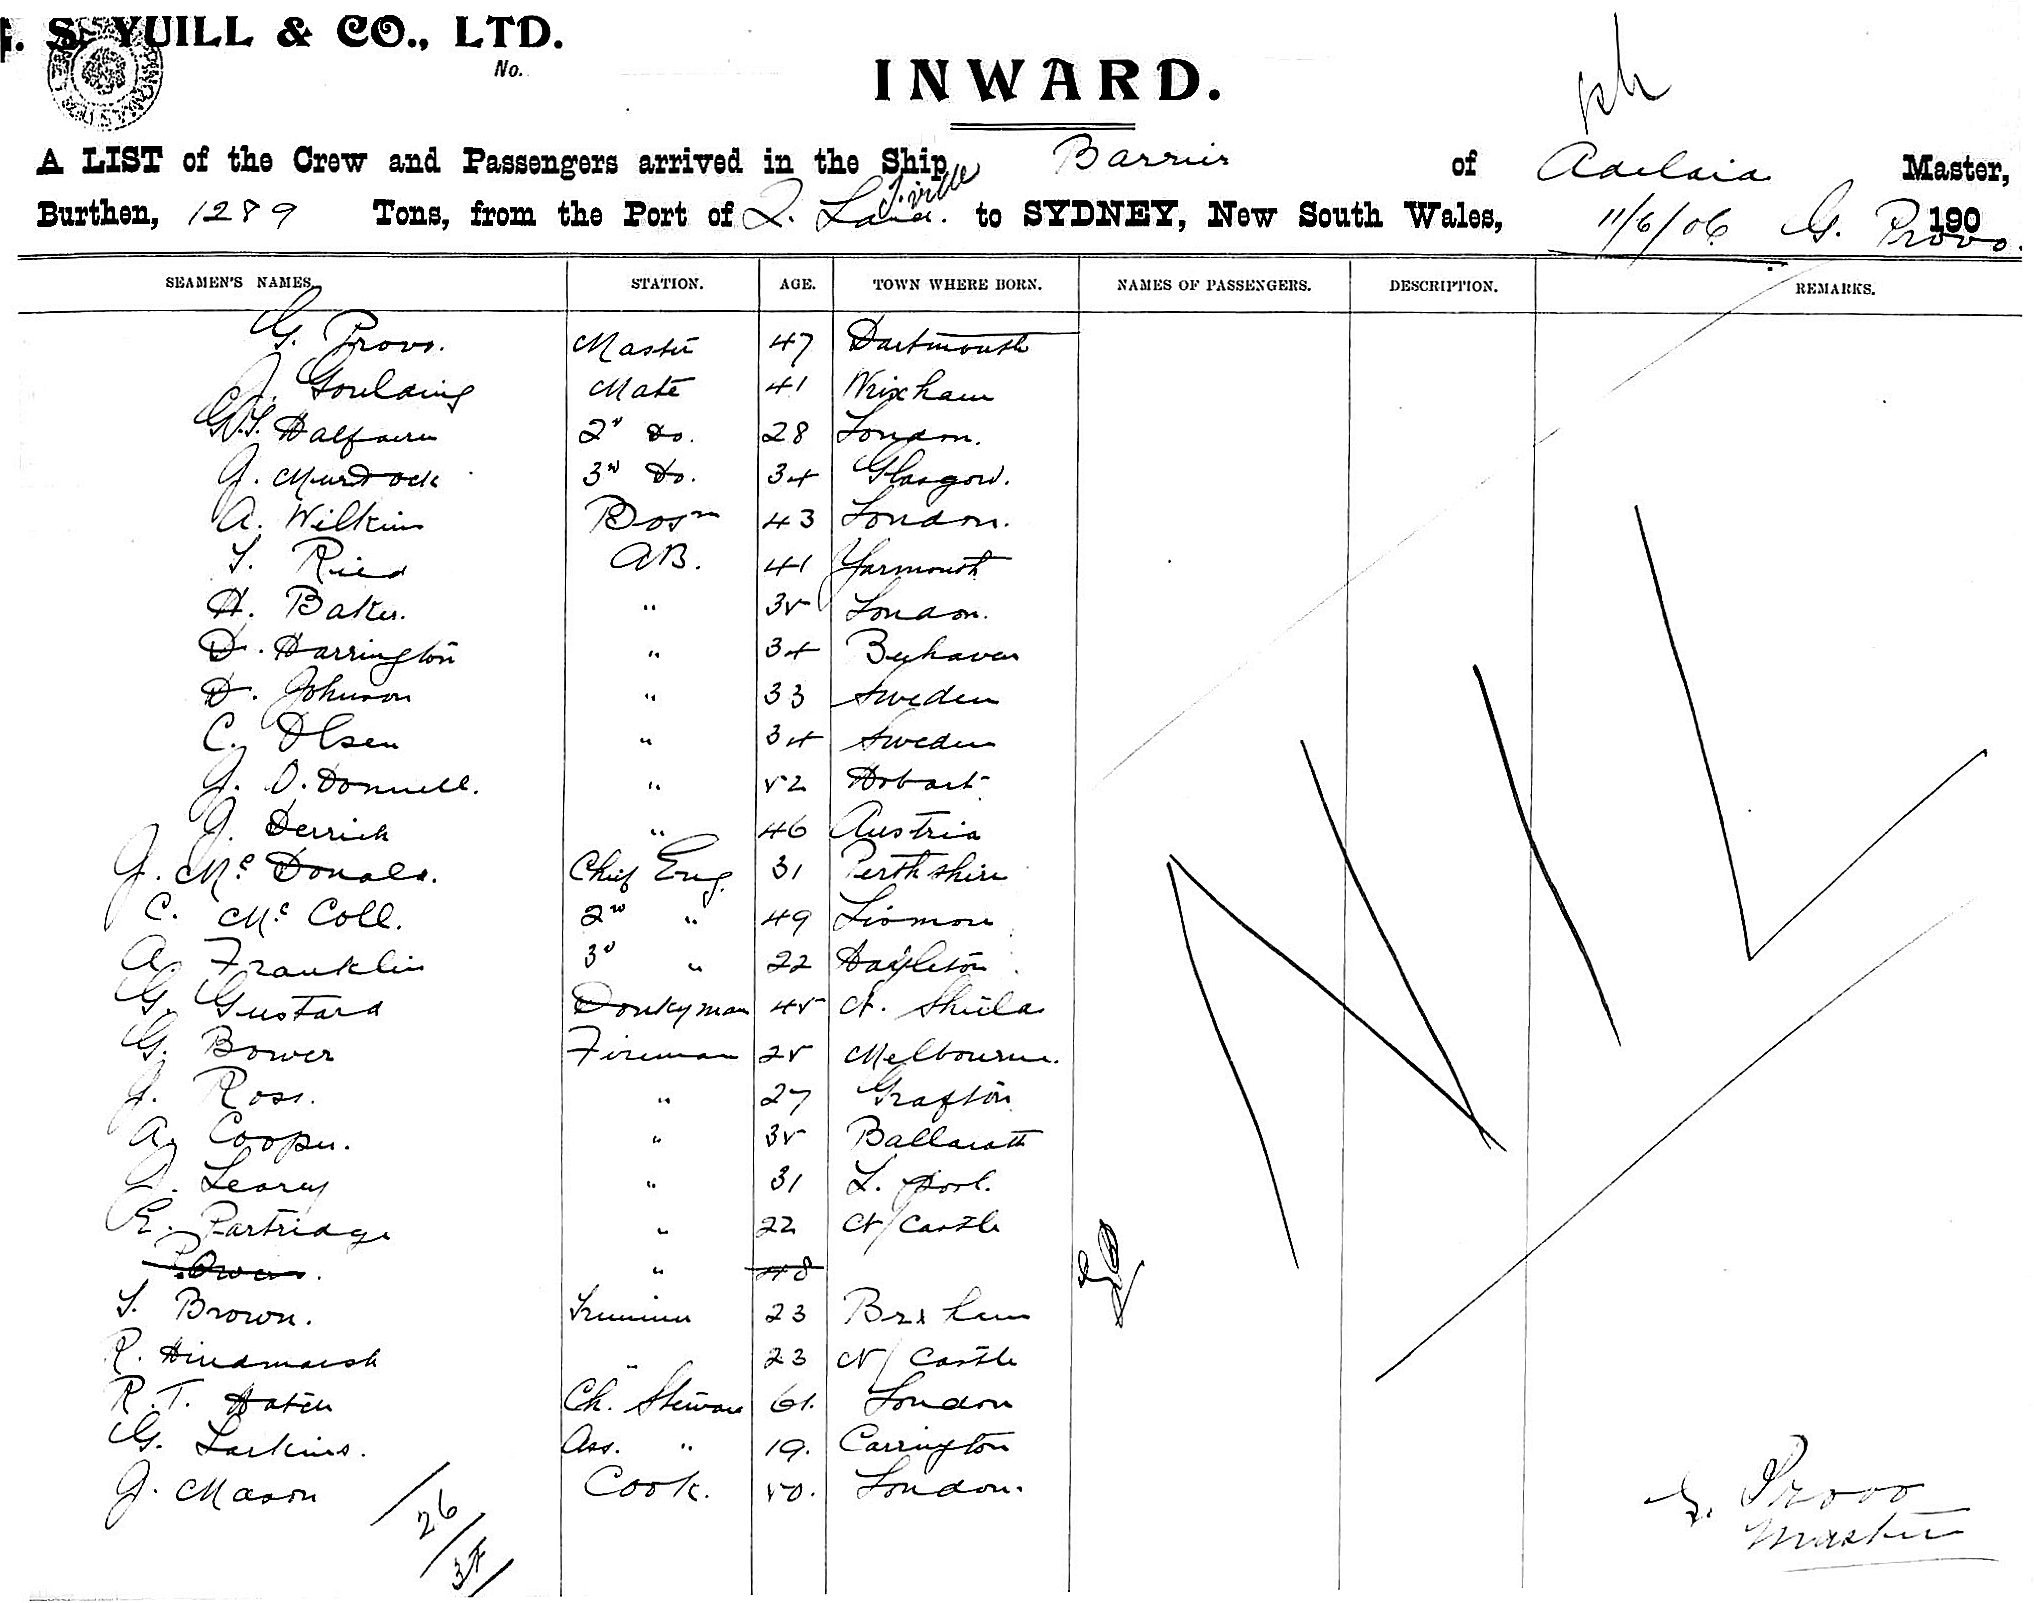 . S. YUILL & CO., LTD.
No.
INWARD.
A LIST of the Crew and Passengers arrived in the Ship Barrier of Adelaide Master,
T.ville
Burthen, 1289 Tons, from the Port of Q. Land. to SYDNEY, New South Wales, 11/6/06 G. Provo. 190
SEAMEN'S NAMES. STATION. AGE. TOWN WHERE BORN. NAMES OF PASSENGERS. DESCRIPTION. REMARKS.
G. Provo. Master 47 Dartmouth
J. Goulding Mate 41 Wrixham
2d Do. 28 London.
J. Murdock 3rd Do. 34 Glasgow.
A. Wilkins Bosn 43 London.
T. Ried AB. 41 Yarmouth
H. Baker. " 35 London.
D. Harrington " 34 Beyhaven
D. Johnson " 33 Sweden
C. Olsen " 34 Sweden
J. O. Donnell. " 52 Hobart
J. Derrick " 46 Austria
J. Mc Donald. Chief Eng. 31 Perthshire
C. Mc Coll. 2nd " 49 Lismore
A. Franklin 3d " 22 Hayleton
G. Gustard Donkyman 45 N. Shields
G. Bower Fireman 25 Melbourne.
J. Ross. " 27 Grafton
A. Cooper. " 35 Ballaratt
J. Leary " 31 L. pool.
E. Partridge " 22 N/Castle
P. Owens. " 48
T. Brown. Trimmer 23 Brxham
R. Hindmarsh " 23 N/Castle
R. T. Hatch Ch. Steward 61. London
G. Larkins. Ass. " 19. Carrington
J. Mason Cook. 50. London.
NIL
26
G. Provo
Master